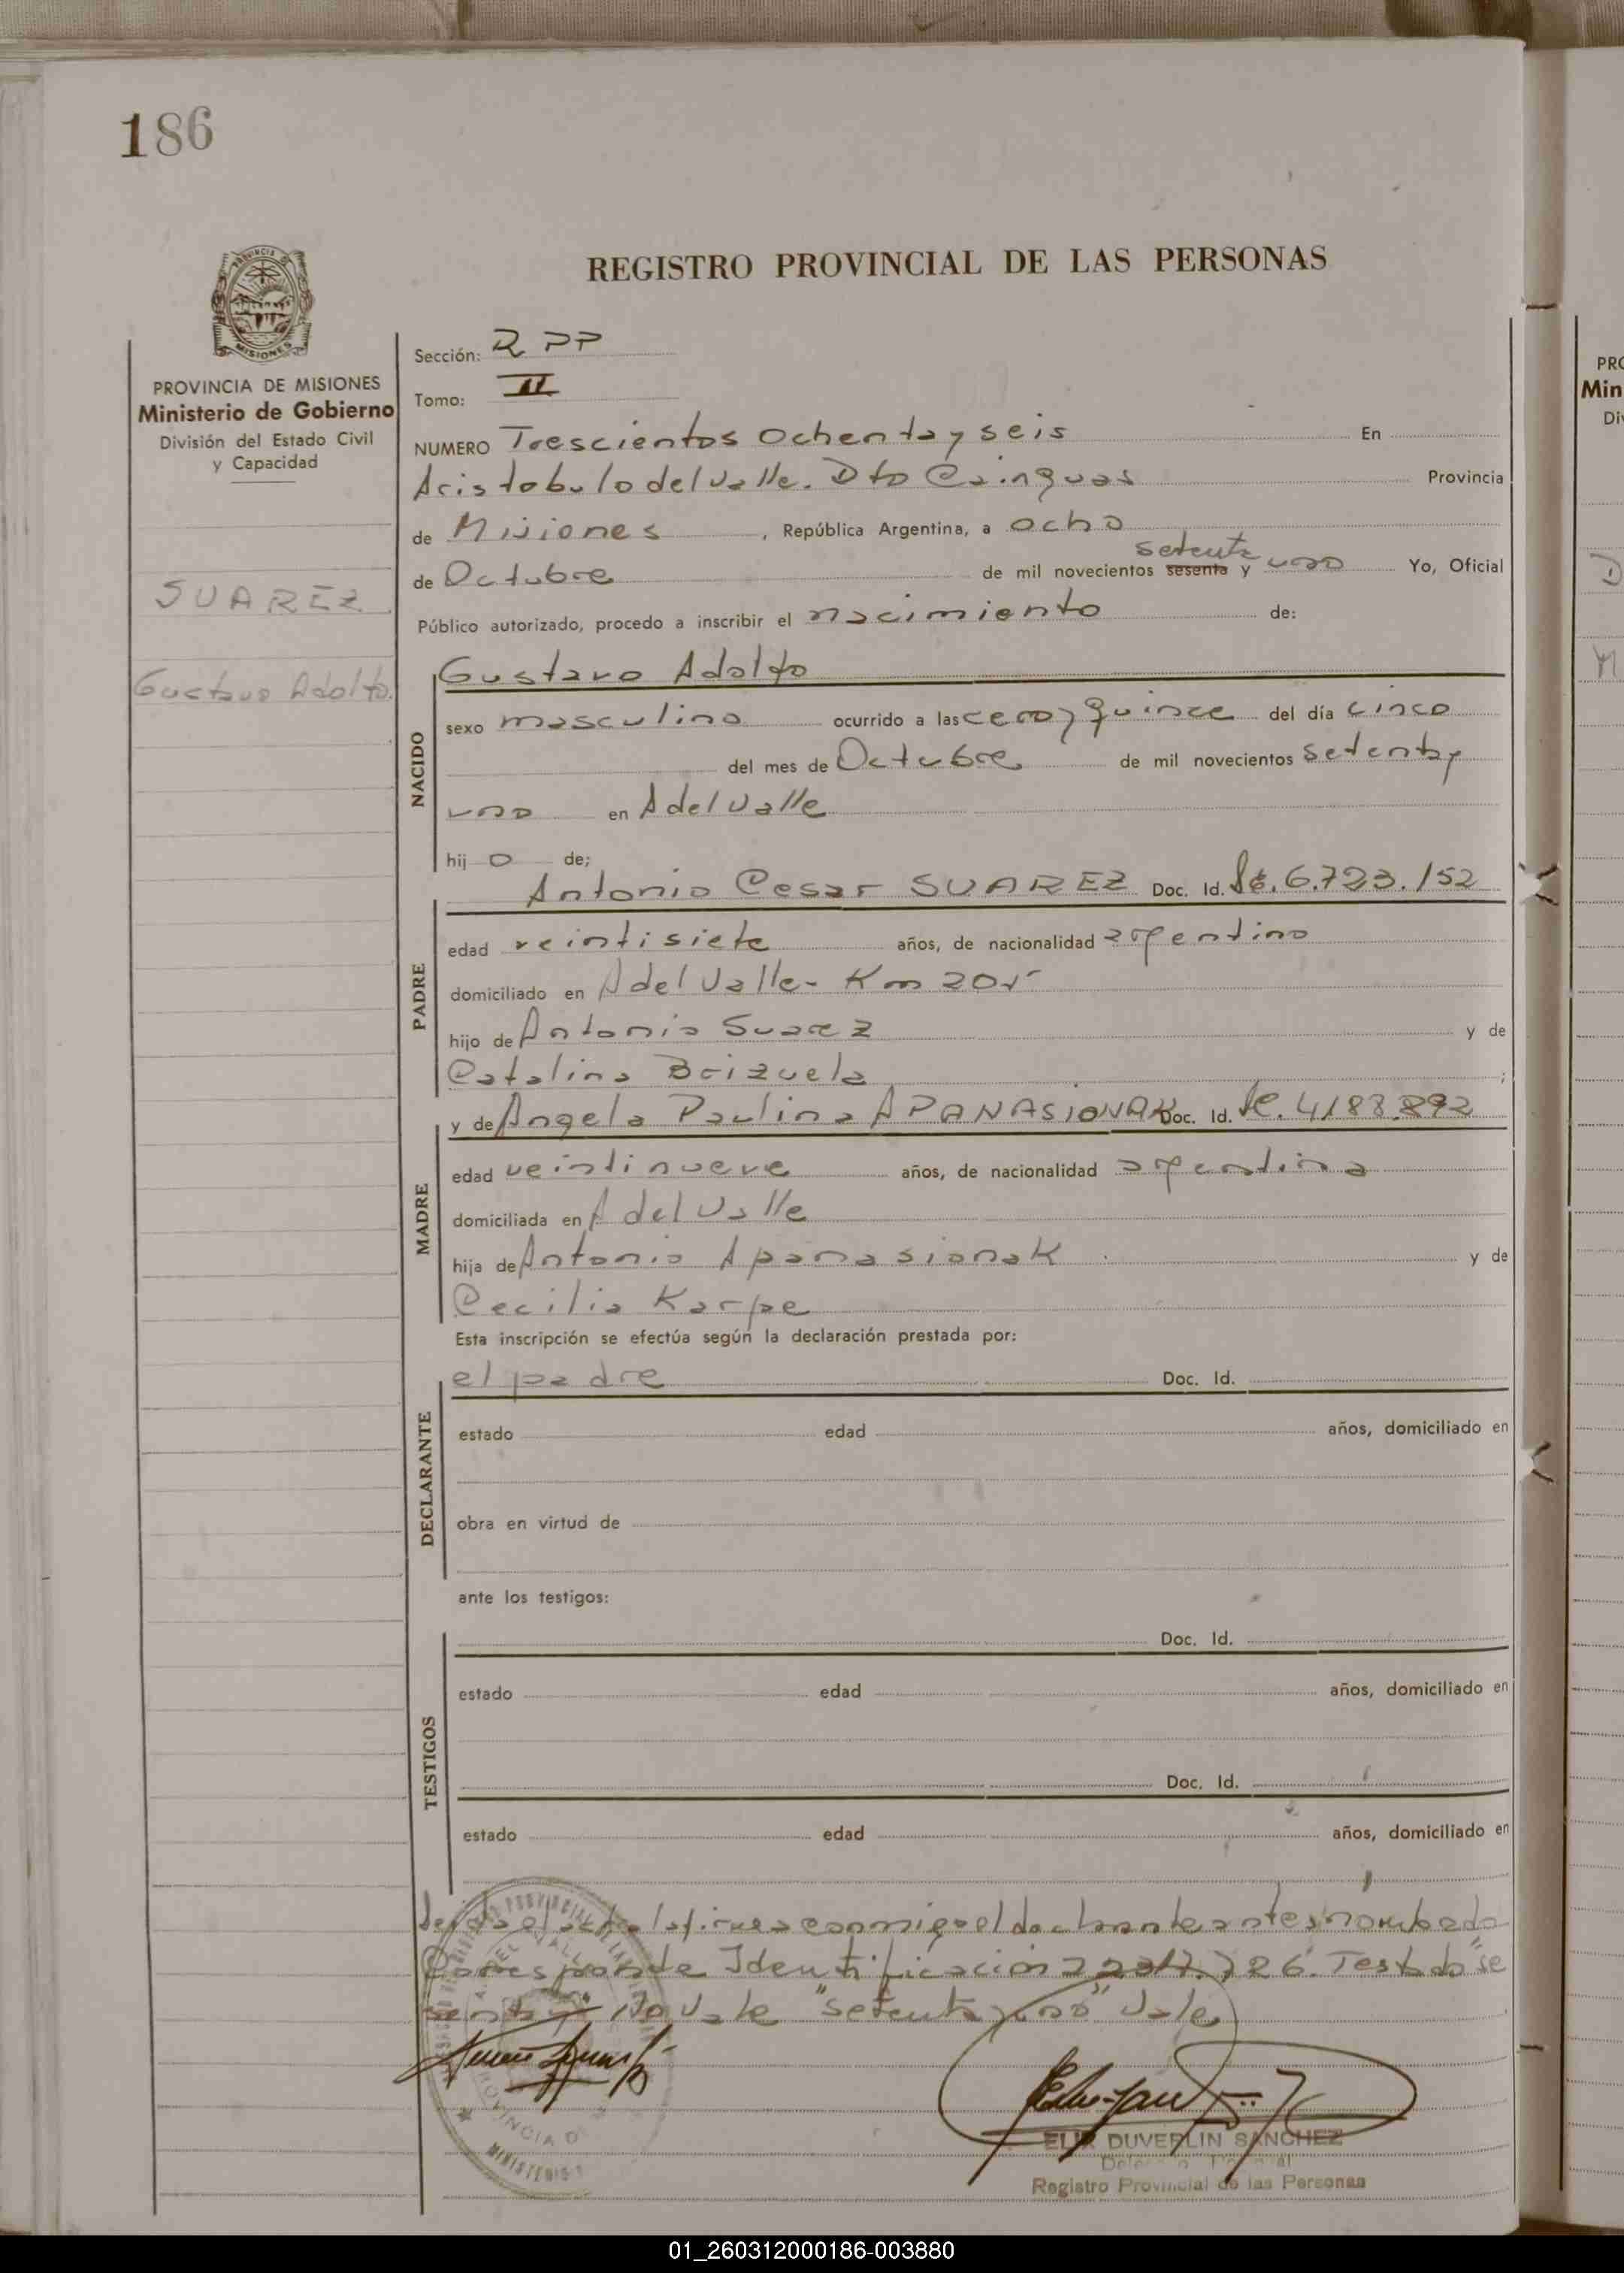 186
REGISTRO PROVINCIAL DE LAS PERSONAS
PROVINCIA DE MISIONES
Ministerio de Gobierno
División del Estado Civil
y Capacidad
SUAREZ
Gustavo Adolfo.
Sección: R PP
Tomo: II
NUMERO Trescientos Ochenta y seis En
Aristobulo del Valle. Dto Cainguas Provincia
de Misiones, República Argentina, a ocho
setenta
de Octubre de mil novecientos sesenta y uno Yo, Oficial
Público autorizado, procedo a inscribir el nacimiento de:
NACIDO
Gustavo Adolfo
sexo masculino ocurrido a las cero y quince del día cinco
del mes de Octubre de mil novecientos setenta y
uno en A del Valle
hij o de;
PADRE
Antonio Cesar SUAREZ Doc. Id. 6.723.152
edad veintisiete años, de nacionalidad argentino
domiciliado en A del Valle - Km 205
hijo de Antonio Suarez y de
Catalina Brizuela ;
MADRE
y de Angela Paulina APANASIONAK Doc. Id. 4188.892
edad veintinueve años, de nacionalidad argentina
domiciliada en A del Valle
hija de Antonio Apanasionak y de
Cecilia Karpe
Esta inscripción se efectúa según la declaración prestada por:
DECLARANTE
el padre Doc. Id.
estado edad años, domiciliado en
obra en virtud de
ante los testigos:
TESTIGOS
Doc. Id.
estado edad años, domiciliado en
Doc. Id.
estado edad años, domiciliado en
el acta la firma conmigo el declarante antes nombrado
Corresponde Identificación Testado "se
senta y" No Vale "setenta y uno" Vale
DUVERLIN SANCHEZ
Registro Provincial de las Personas
PROVINCIA D
MINISTERIO
PRO
Min
Div
01_260312000186-003880